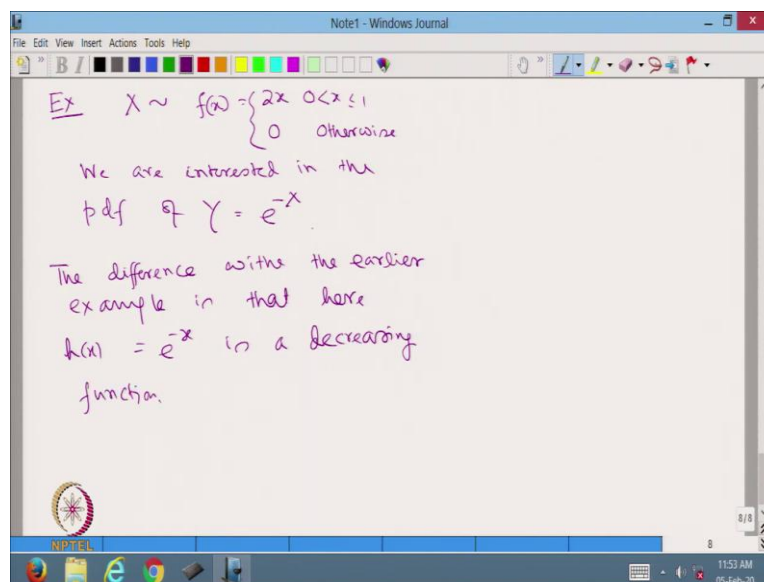 Note1 - Windows Journal
File Edit View Insert Actions Tools Help
B I
Ex X ~ f(x) = { 2x 0<x≤1
0 otherwise
We are interested in the
pdf of Y = e^{-X}.
The difference withe the earlier
example in that here
h(x) = e^{-x} in a decreasing
function.
NPTEL
8/8
8
11:53 AM
05-Feb-20